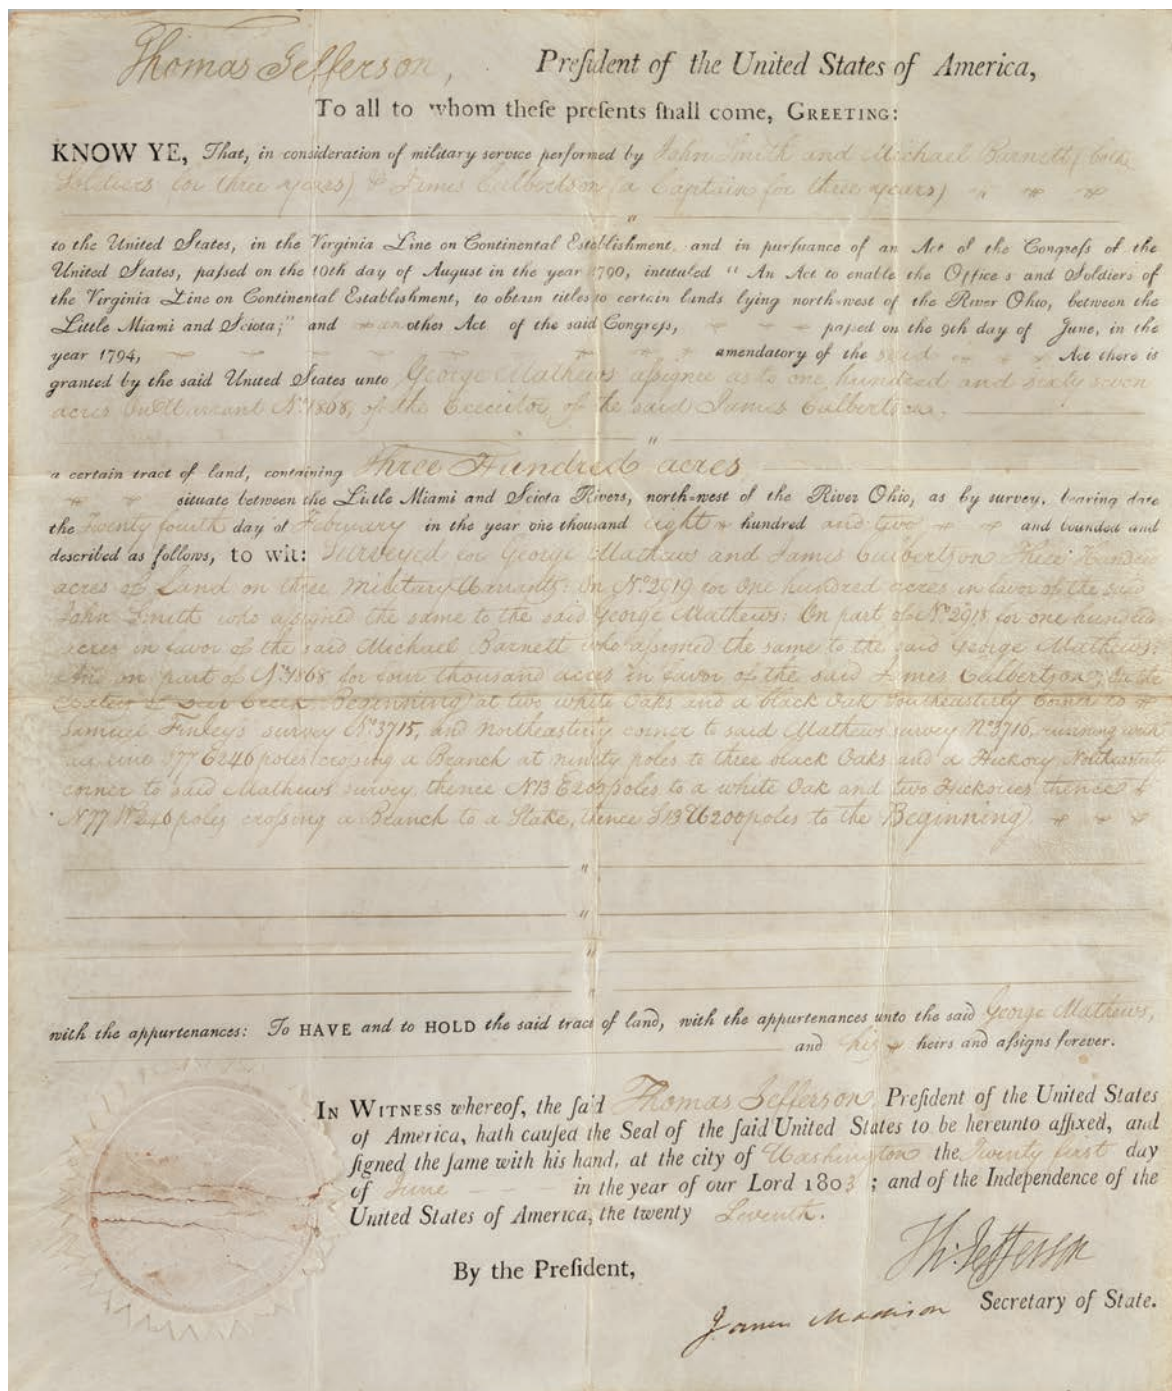 Thomas Jefferson, Preſident of the United States of America,
To all to whom theſe preſents ſhall come, GREETING:
KNOW YE, That, in consideration of military service performed by John Smith and Michael Barnett (both
Soldiers for three years) & James Culbertson (a Captain for three years)
to the United States, in the Virginia Line on Continental Establishment, and in purſuance of an Act of the Congreſs of the
United States, paſsed on the 10th day of August in the year 1790, intituled "An Act to enable the Officers and Soldiers of
the Virginia Line on Continental Establishment, to obtain titles to certain lands lying north-west of the River Ohio, between the
Little Miami and Sciota;" and another Act of the said Congreſs, paſsed on the 9th day of June, in the
year 1794, amendatory of the said Act there is
granted by the said United States unto George Mathews aſsignee as to one hundred and sixty seven
acres On Warrant Nº. 1868, of the Executor of the said James Culbertson.
a certain tract of land, containing Three Hundred acres
situate between the Little Miami and Sciota Rivers, north-west of the River Ohio, as by survey, bearing date
the Twenty fourth day of February in the year one thousand eight hundred and two and bounded and
described as follows, to wit: Surveyed for George Mathews and James Culbertson Three Hundred
acres of Land on three Military Warrants: On Nº 2919 for one hundred acres in favor of the said
John Smith who aſsigned the same to the said George Mathews: On part of Nº 2918 for one hundred
acres in favor of the said Michael Barnett who aſsigned the same to the said George Mathews:
And on part of Nº 1868 for four thousand acres in favor of the said James Culbertson; On the
Waters of Deer Creek, Beginning at two white Oaks and a black Oak Southeasterly corner to
Samuel Finley's survey Nº 3715, and Northeasterly corner to said Mathews survey Nº 3716, running with
line S77 E240 poles croſsing a Branch at ninety poles to three black Oaks and a Hickory Northeasterly
corner to said Mathews survey, thence N13 E200 poles to a white Oak and two Hickories thence
N77 W240 poles croſsing a Branch to a Stake, thence S13 W200 poles to the Beginning
with the appurtenances: To HAVE and to HOLD the said tract of land, with the appurtenances unto the said George Mathews,
and his heirs and aſsigns forever.
IN WITNESS whereof, the ſaid Thomas Jefferson Preſident of the United States
of America, hath cauſed the Seal of the ſaid United States to be hereunto affixed, and
ſigned the ſame with his hand, at the city of Washington the Twenty first day
of June in the year of our Lord 1803 ; and of the Independence of the
United States of America, the twenty Seventh.
Th: Jefferson
By the Preſident,
James Madison Secretary of State.